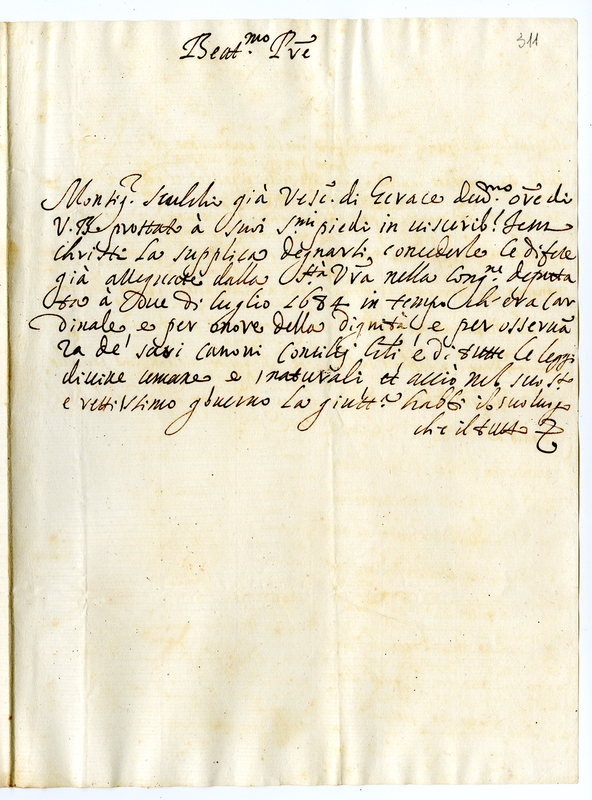 311
Beat.mo Pre
Monsig.r già Vesc.o di Gerace dev.mo ore di
V. B. prostrato à suoi s.mi piedi in visceribus Iesu
Christi La supplica degnarsi concederle le difese
già allegate dalla Stà Vrã nella Cong.ne deputa
ta à due di luglio 1684 in tempo ch'era Car
dinale e per onore della dignità, e per osservã
za de' sacri canoni Concilij e di tutte le leggi
divine umane e naturali et acciò nel suo
e rettissimo governo La giust.a habbi il suo luogo
che il tutto